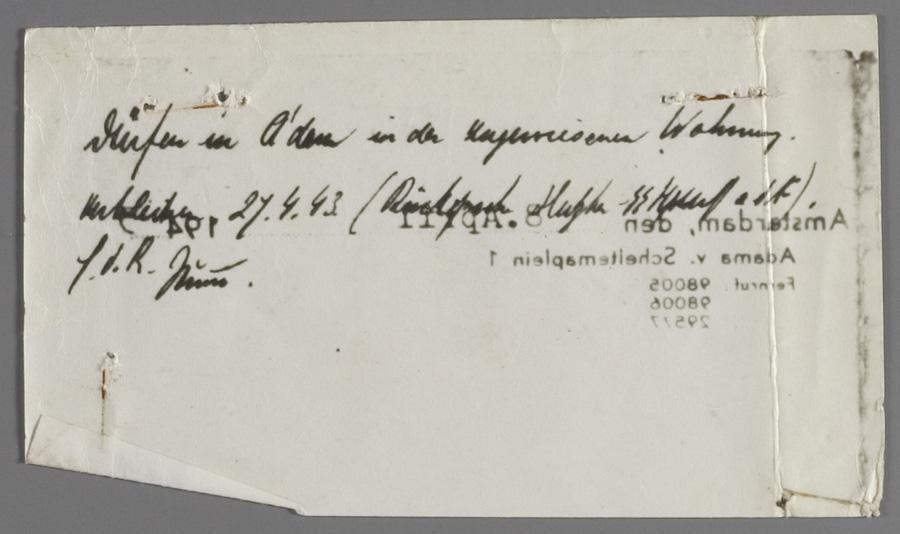 Dürfen in A'dam in der angewiesenen Wohnung.
verbleiben 27.4.43. (
Amsterdam, den 8. April 194
f.d.R.
Adama v. Scheltemaplein 1
Fernruf: 98005
98006
29577